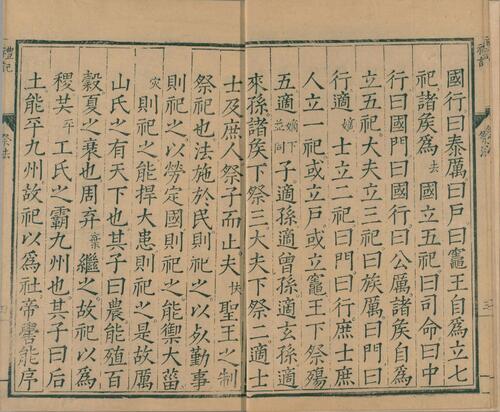 國行曰泰厲曰戶曰竈王自為立七
祀諸矦為去國立五祀曰司命曰中
霤曰國門曰國行曰公厲諸矦自為
立五祀大夫立三祀曰族厲曰門曰
行適嫡士立二祀曰門曰行庶士庶
人立一祀或立戶或立竈王下祭殤
五適嫡下並同子適孫適曾孫適玄孫適
來孫諸矦下祭三大夫下祭二適士
士及庶人祭子而止夫扶聖王之制
祭祀也法施於民則祀之以死勤事
則祀之以勞定國則祀之能禦大菑
災則祀之能捍大患則祀之是故厲
山氏之有天下也其子曰農能殖百
穀夏之衰也周弃棄繼之故祀以為
稷共平工氏之霸九州也其子曰后
土能平九州故祀以為社帝嚳能序
禮記 祭法